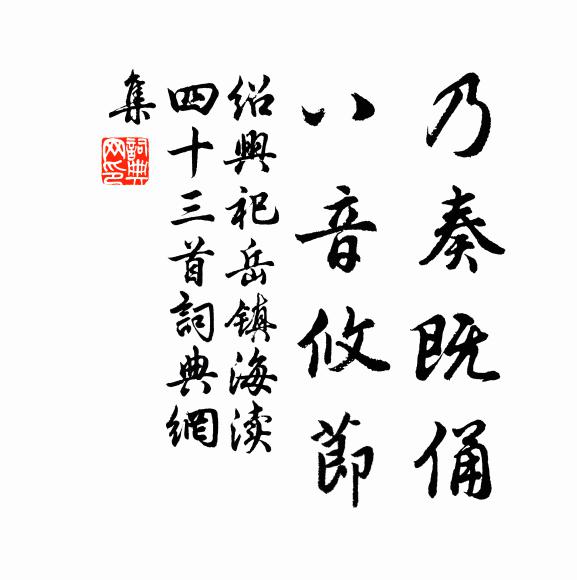 乃奏既俑
八音攸節
紹興祀岳镇海渎
四十三首詞典網
集
詞典網印